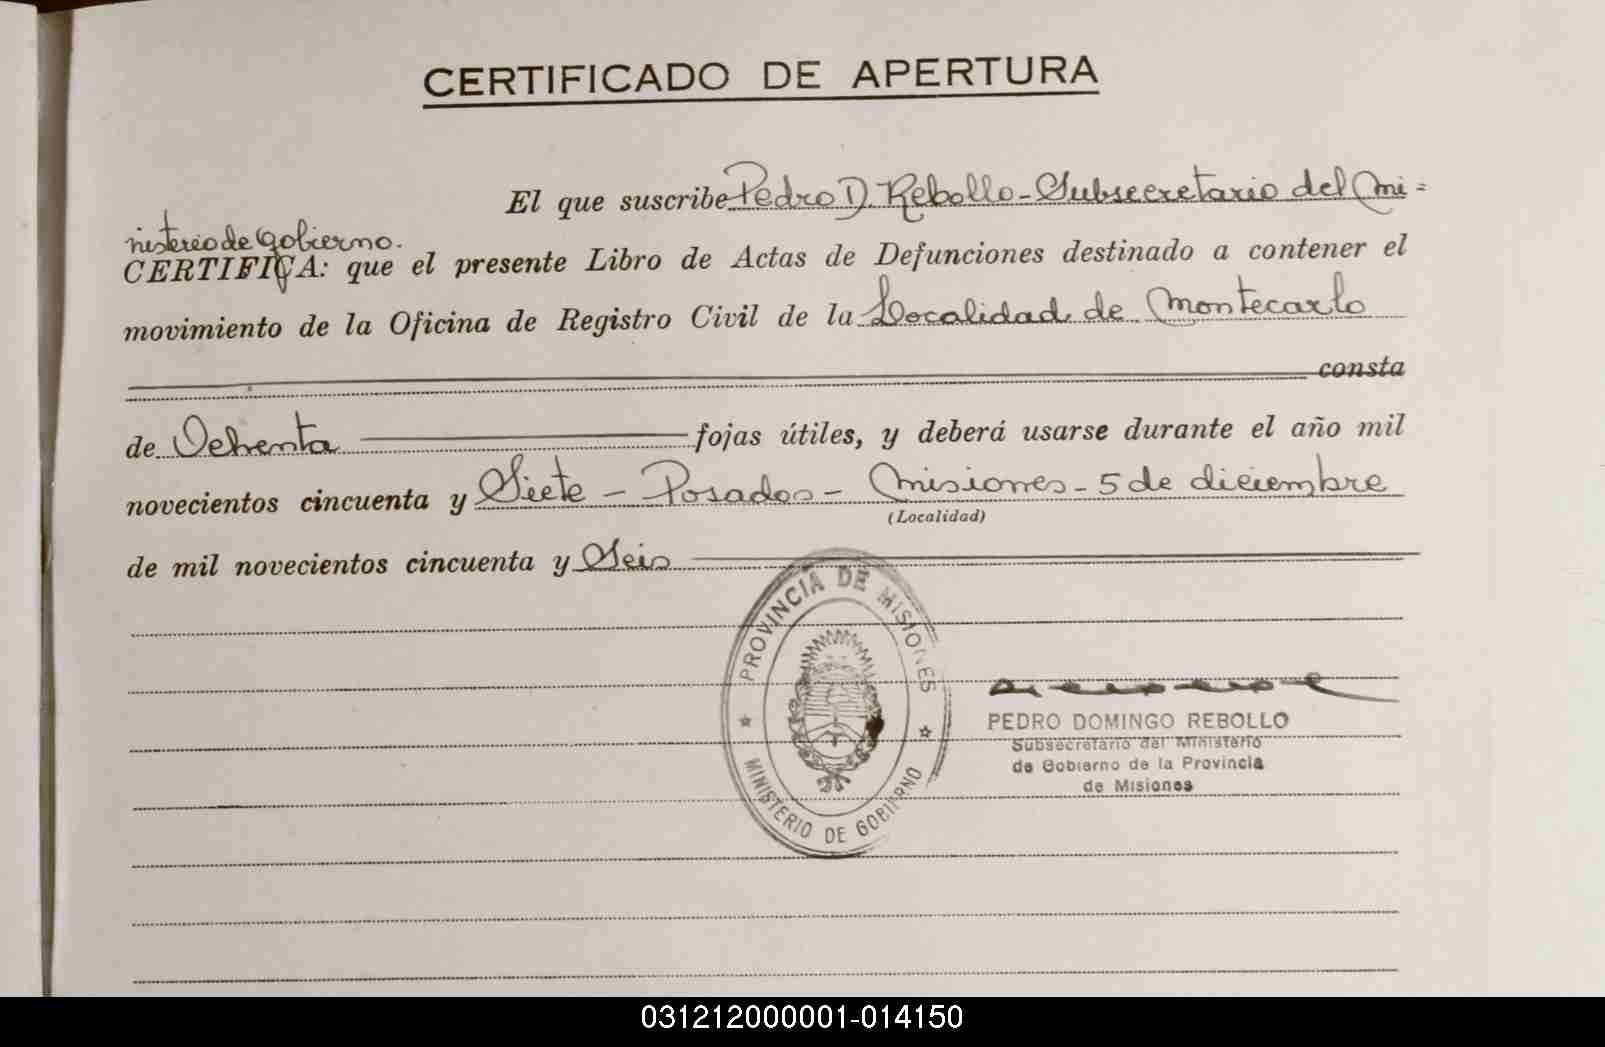 CERTIFICADO DE APERTURA
El que suscribe Pedro D. Rebollo - Subsecretario del Mi=
nisterio de Gobierno.
CERTIFICA: que el presente Libro de Actas de Defunciones destinado a contener el
movimiento de la Oficina de Registro Civil de la Localidad de Montecarlo
consta
de Ochenta fojas útiles, y deberá usarse durante el año mil
novecientos cincuenta y Siete - Posadas - Misiones - 5 de diciembre
(Localidad)
de mil novecientos cincuenta y Seis
PROVINCIA DE MISIONES
MINISTERIO DE GOBIERNO
PEDRO DOMINGO REBOLLO
Subsecretario del Ministerio
de Gobierno de la Provincia
de Misiones
031212000001-014150